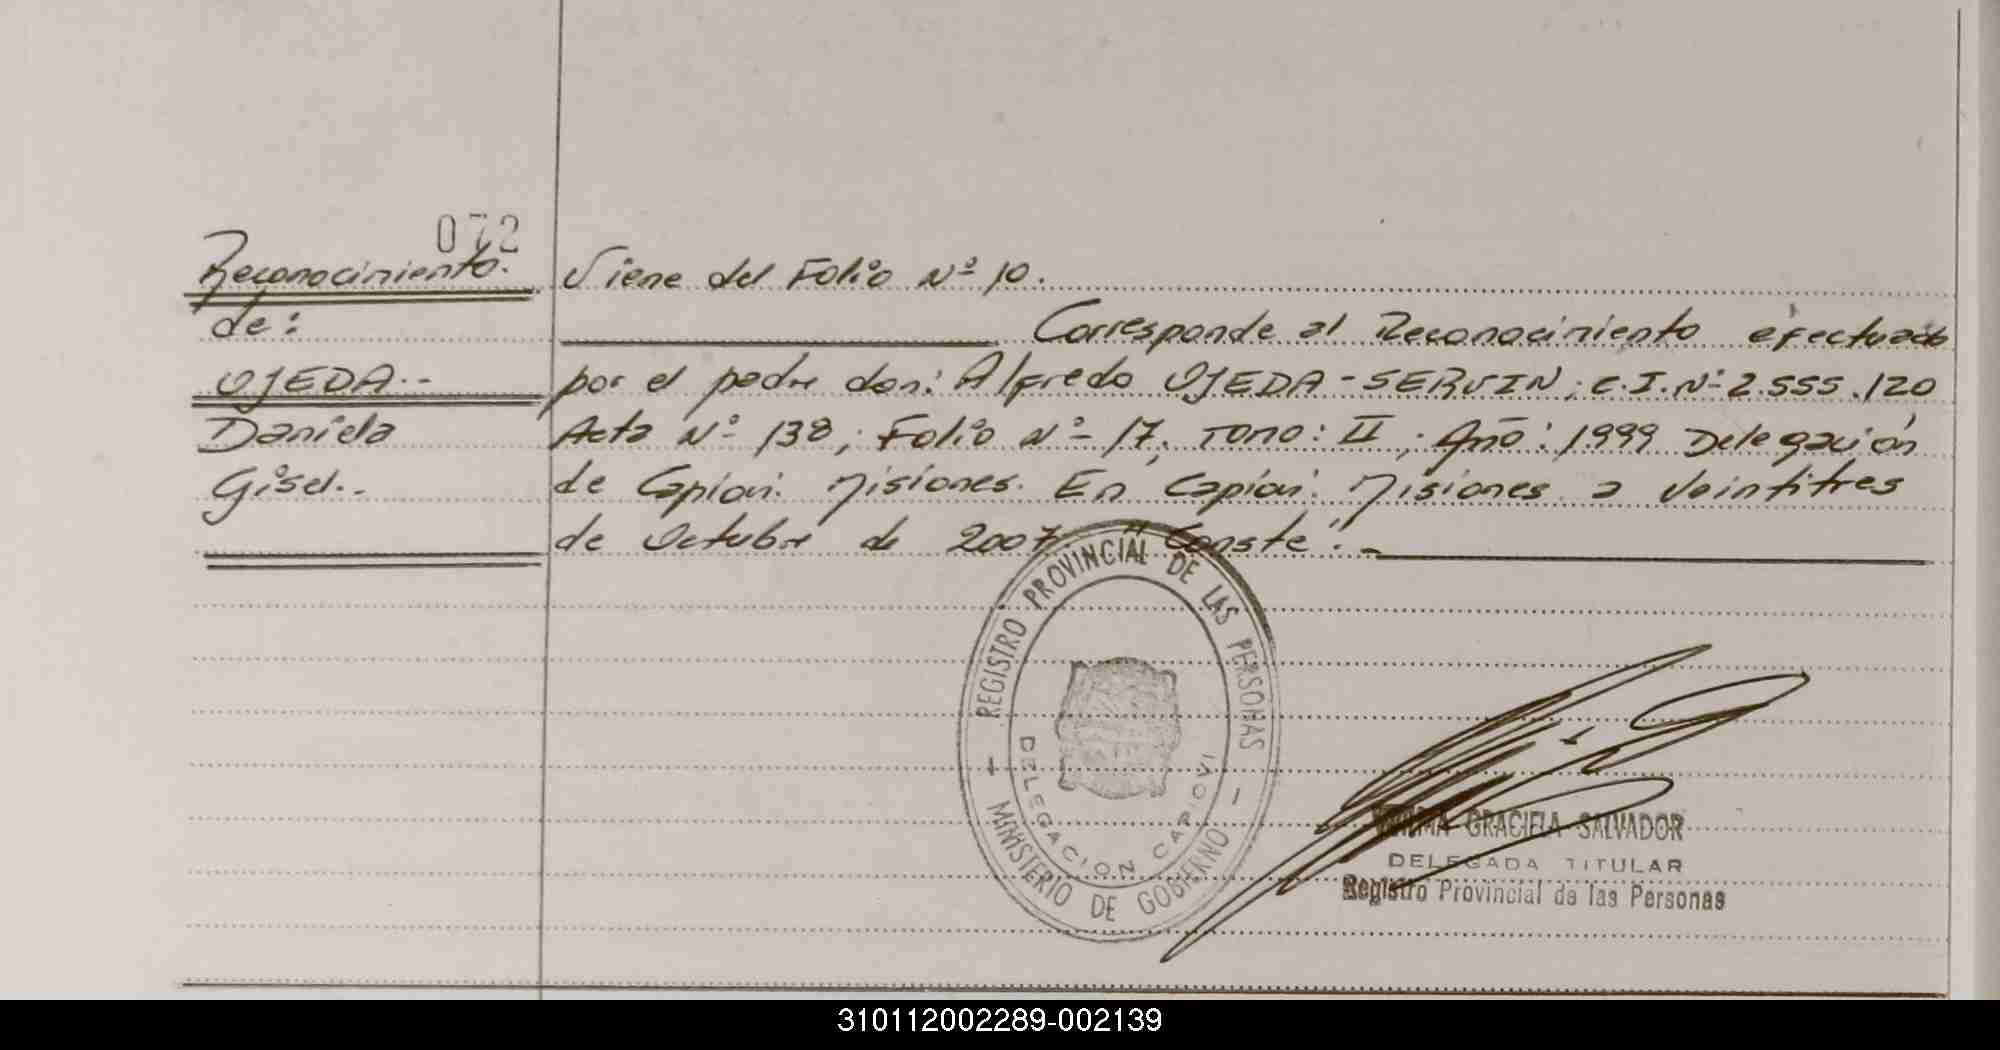 072
Reconocimiento.
de:
OJEDA.-
Daniela
Gisel.-
Viene del Folio Nº 10.
Corresponde al Reconocimiento efectuado
por el padre don: Alfredo OJEDA-SERVIN; C.I.Nº 2.555.120
Acta Nº 138; Folio Nº 17; Tomo: II; Año: 1999 Delegación
de Capiovi. Misiones. En Capiovi. Misiones a veintitres
de Octubre de 2007. "Conste".-
REGISTRO PROVINCIAL DE LAS PERSONAS
DELEGACION CAPIOVI
- MINISTERIO DE GOBIERNO -
GRACIELA SALVADOR
DELEGADA TITULAR
Registro Provincial de las Personas
310112002289-002139